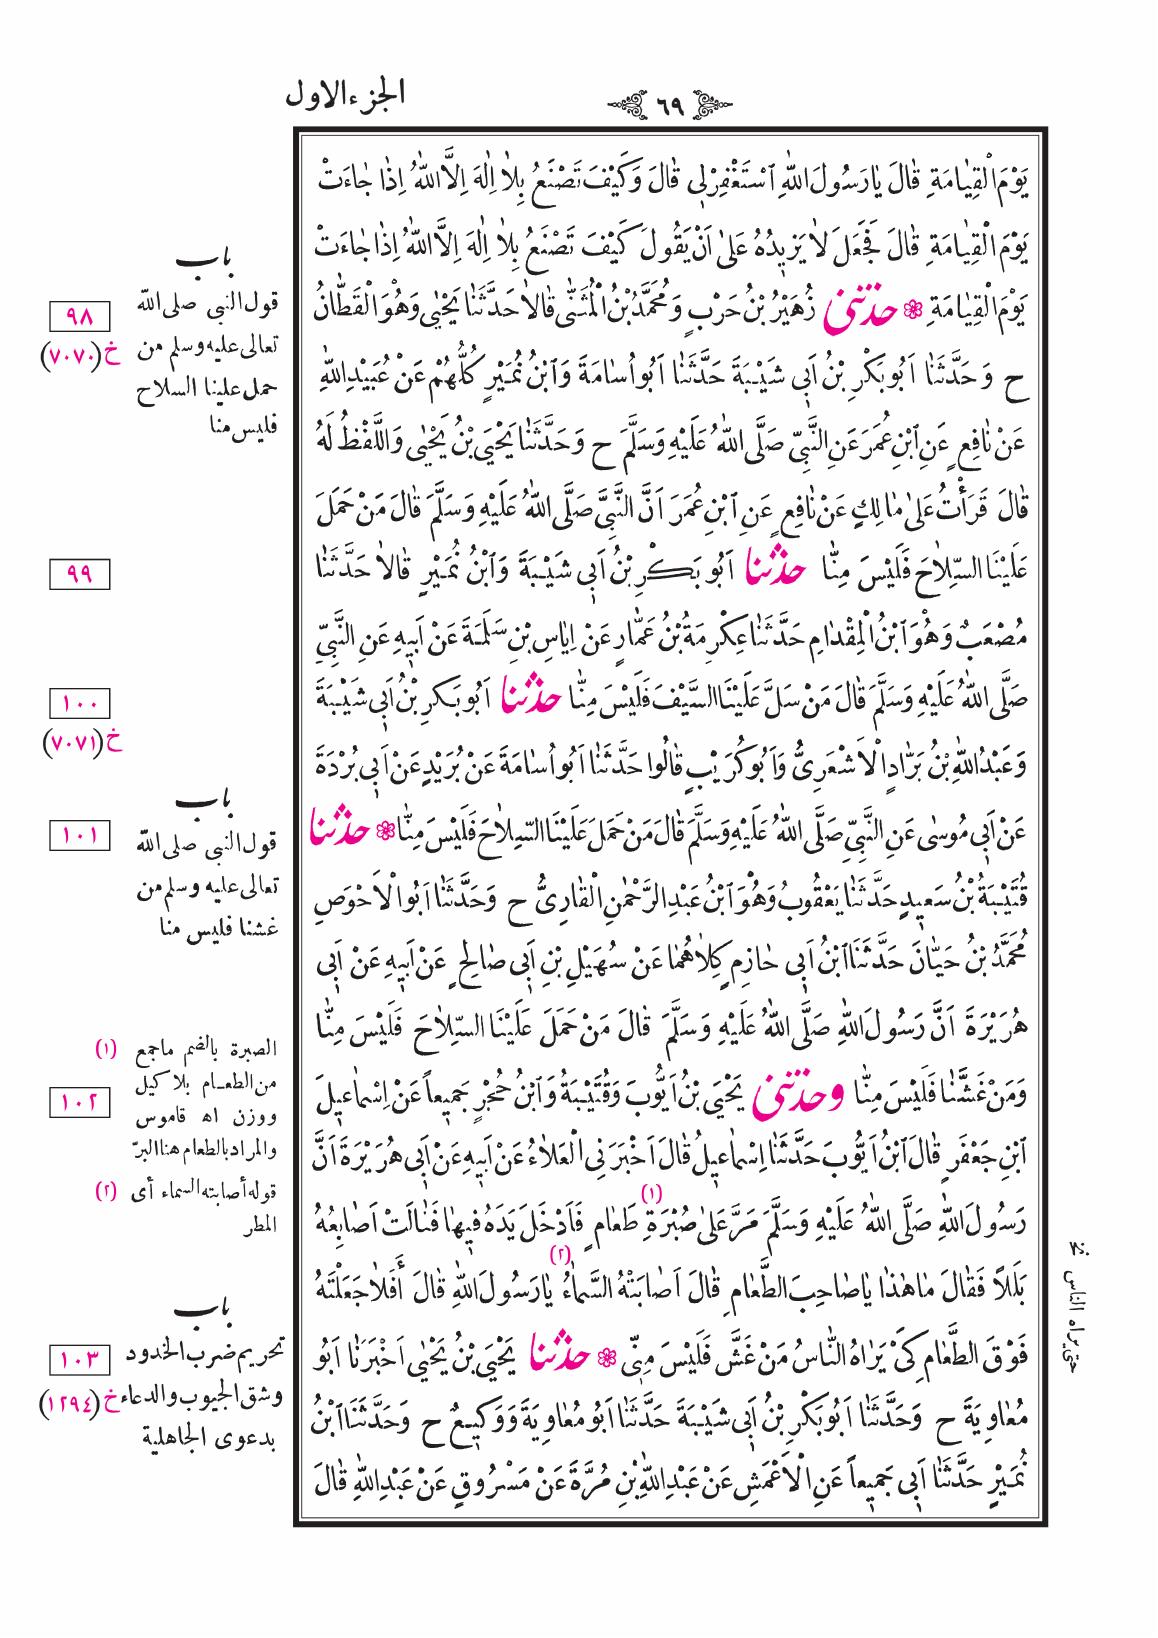 الجزء الاول
٦٩
يَوْمَ الْقِيَامَةِ قَالَ يَا رَسُولَ اللّٰهِ اسْتَغْفِرْ لِي قَالَ وَكَيْفَ تَصْنَعُ بِلَا اِلٰهَ اِلَّا اللّٰهُ اِذَا جَاءَتْ
يَوْمَ الْقِيَامَةِ قَالَ فَجَعَلَ لَا يَزِيدُهُ عَلَى اَنْ يَقُولَ كَيْفَ تَصْنَعُ بِلَا اِلٰهَ اِلَّا اللّٰهُ اِذَا جَاءَتْ
يَوْمَ الْقِيَامَةِ ❁ حدثني زُهَيْرُ بْنُ حَرْبٍ وَمُحَمَّدُ بْنُ الْمُثَنَّى قَالَا حَدَّثَنَا يَحْيٰى وَهُوَ الْقَطَّانُ
ح وَحَدَّثَنَا اَبُو بَكْرِ بْنُ اَبِي شَيْبَةَ حَدَّثَنَا اَبُو اُسَامَةَ وَابْنُ نُمَيْرٍ كُلُّهُمْ عَنْ عُبَيْدِ اللّٰهِ
عَنْ نَافِعٍ عَنِ ابْنِ عُمَرَ عَنِ النَّبِيِّ صَلَّى اللّٰهُ عَلَيْهِ وَسَلَّمَ ح وَحَدَّثَنَا يَحْيَى بْنُ يَحْيٰى وَاللَّفْظُ لَهُ
قَالَ قَرَأْتُ عَلٰى مَالِكٍ عَنْ نَافِعٍ عَنِ ابْنِ عُمَرَ اَنَّ النَّبِيَّ صَلَّى اللّٰهُ عَلَيْهِ وَسَلَّمَ قَالَ مَنْ حَمَلَ
عَلَيْنَا السِّلَاحَ فَلَيْسَ مِنَّا حدثنا اَبُو بَكْرِ بْنُ اَبِي شَيْبَةَ وَابْنُ نُمَيْرٍ قَالَا حَدَّثَنَا
مُصْعَبٌ وَهُوَ ابْنُ الْمِقْدَامِ حَدَّثَنَا عِكْرِمَةُ بْنُ عَمَّارٍ عَنْ اِيَاسِ بْنِ سَلَمَةَ عَنْ اَبِيهِ عَنِ النَّبِيِّ
صَلَّى اللّٰهُ عَلَيْهِ وَسَلَّمَ قَالَ مَنْ سَلَّ عَلَيْنَا السَّيْفَ فَلَيْسَ مِنَّا حدثنا اَبُو بَكرِ بْنُ اَبِي شَيْبَةَ
وَعَبْدُ اللّٰهِ بْنُ بَرَّادٍ الْاَشْعَرِيُّ وَاَبُو كُرَيْبٍ قَالُوا حَدَّثَنَا اَبُو اُسَامَةَ عَنْ بُرَيْدٍ عَنْ اَبِي بُرْدَةَ
عَنْ اَبِي مُوسٰى عَنِ النَّبِيِّ صَلَّى اللّٰهُ عَلَيْهِ وَسَلَّمَ قَالَ مَنْ حَمَلَ عَلَيْنَا السِّلَاحَ فَلَيْسَ مِنَّا ❁ حدثنا
قُتَيْبَةُ بْنُ سَعِيدٍ حَدَّثَنَا يَعْقُوبُ وَهُوَ ابْنُ عَبْدِ الرَّحْمٰنِ الْقَارِيُّ ح وَحَدَّثَنَا اَبُو الْاَحْوَصِ
مُحَمَّدُ بْنُ حَيَّانَ حَدَّثَنَا ابْنُ اَبِي حَازِمٍ كِلَاهُمَا عَنْ سُهَيْلِ بْنِ اَبِي صَالِحٍ عَنْ اَبِيهِ عَنْ اَبِي
هُرَيْرَةَ اَنَّ رَسُولَ اللّٰهِ صَلَّى اللّٰهُ عَلَيْهِ وَسَلَّمَ قَالَ مَنْ حَمَلَ عَلَيْنَا السِّلَاحَ فَلَيْسَ مِنَّا
وَمَنْ غَشَّنَا فَلَيْسَ مِنَّا وحدثني يَحْيَى بْنُ اَيُّوبَ وَقُتَيْبَةُ وَابْنُ حُجْرٍ جَمِيعاً عَنْ اِسْمَاعِيلَ
ابْنِ جَعْفَرٍ قَالَ ابْنُ اَيُّوبَ حَدَّثَنَا اِسْمَاعِيلُ قَالَ اَخْبَرَنِي الْعَلَاءُ عَنْ اَبِيهِ عَنْ اَبِي هُرَيْرَةَ اَنَّ
رَسُولَ اللّٰهِ صَلَّى اللّٰهُ عَلَيْهِ وَسَلَّمَ مَرَّ عَلٰى صُبْرَةِ (١) طَعَامٍ فَاَدْخَلَ يَدَهُ فِيهَا فَنَالَتْ اَصَابِعُهُ
بَلَلاً فَقَالَ مَا هٰذَا يَا صَاحِبَ الطَّعَامِ قَالَ اَصَابَتْهُ السَّمَاءُ (٢) يَا رَسُولَ اللّٰهِ قَالَ أَفَلَا جَعَلْتَهُ
فَوْقَ الطَّعَامِ كَيْ يَرَاهُ النَّاسُ مَنْ غَشَّ فَلَيْسَ مِنِّي ❁ حدثنا يَحْيَى بْنُ يَحْيٰى اَخْبَرَنَا اَبُو
مُعَاوِيَةَ ح وَحَدَّثَنَا اَبُو بَكْرِ بْنُ اَبِي شَيْبَةَ حَدَّثَنَا اَبُو مُعَاوِيَةَ وَوَكِيعٌ ح وَحَدَّثَنَا ابْنُ
نُمَيْرٍ حَدَّثَنَا اَبِي جَمِيعاً عَنِ الْاَعْمَشِ عَنْ عَبْدِ اللّٰهِ بْنِ مُرَّةَ عَنْ مَسْرُوقٍ عَنْ عَبْدِ اللّٰهِ قَالَ
باب
قول النبى صلى الله
تعالى عليه وسلم من
حمل علينا السلاح
فليس منا
٩٨
خ (٧٠٧٠)
٩٩
١٠٠
خ (٧٠٧١)
باب
قول النبى صلى الله
تعالى عليه وسلم من
غشنا فليس منا
١٠١
(١) الصبرة بالضم ماجمع
من الطعام بلا كيل
ووزن اه قاموس
والمراد بالطعام هنا البرّ
١٠٢
(٢) قوله أصابته السماء أى
المطر
باب
تحريم ضرب الخدود
وشق الجيوب والدعاء
بدعوى الجاهلية
١٠٣
خ (١٢٩٤)
حتى يراه الناس نخ